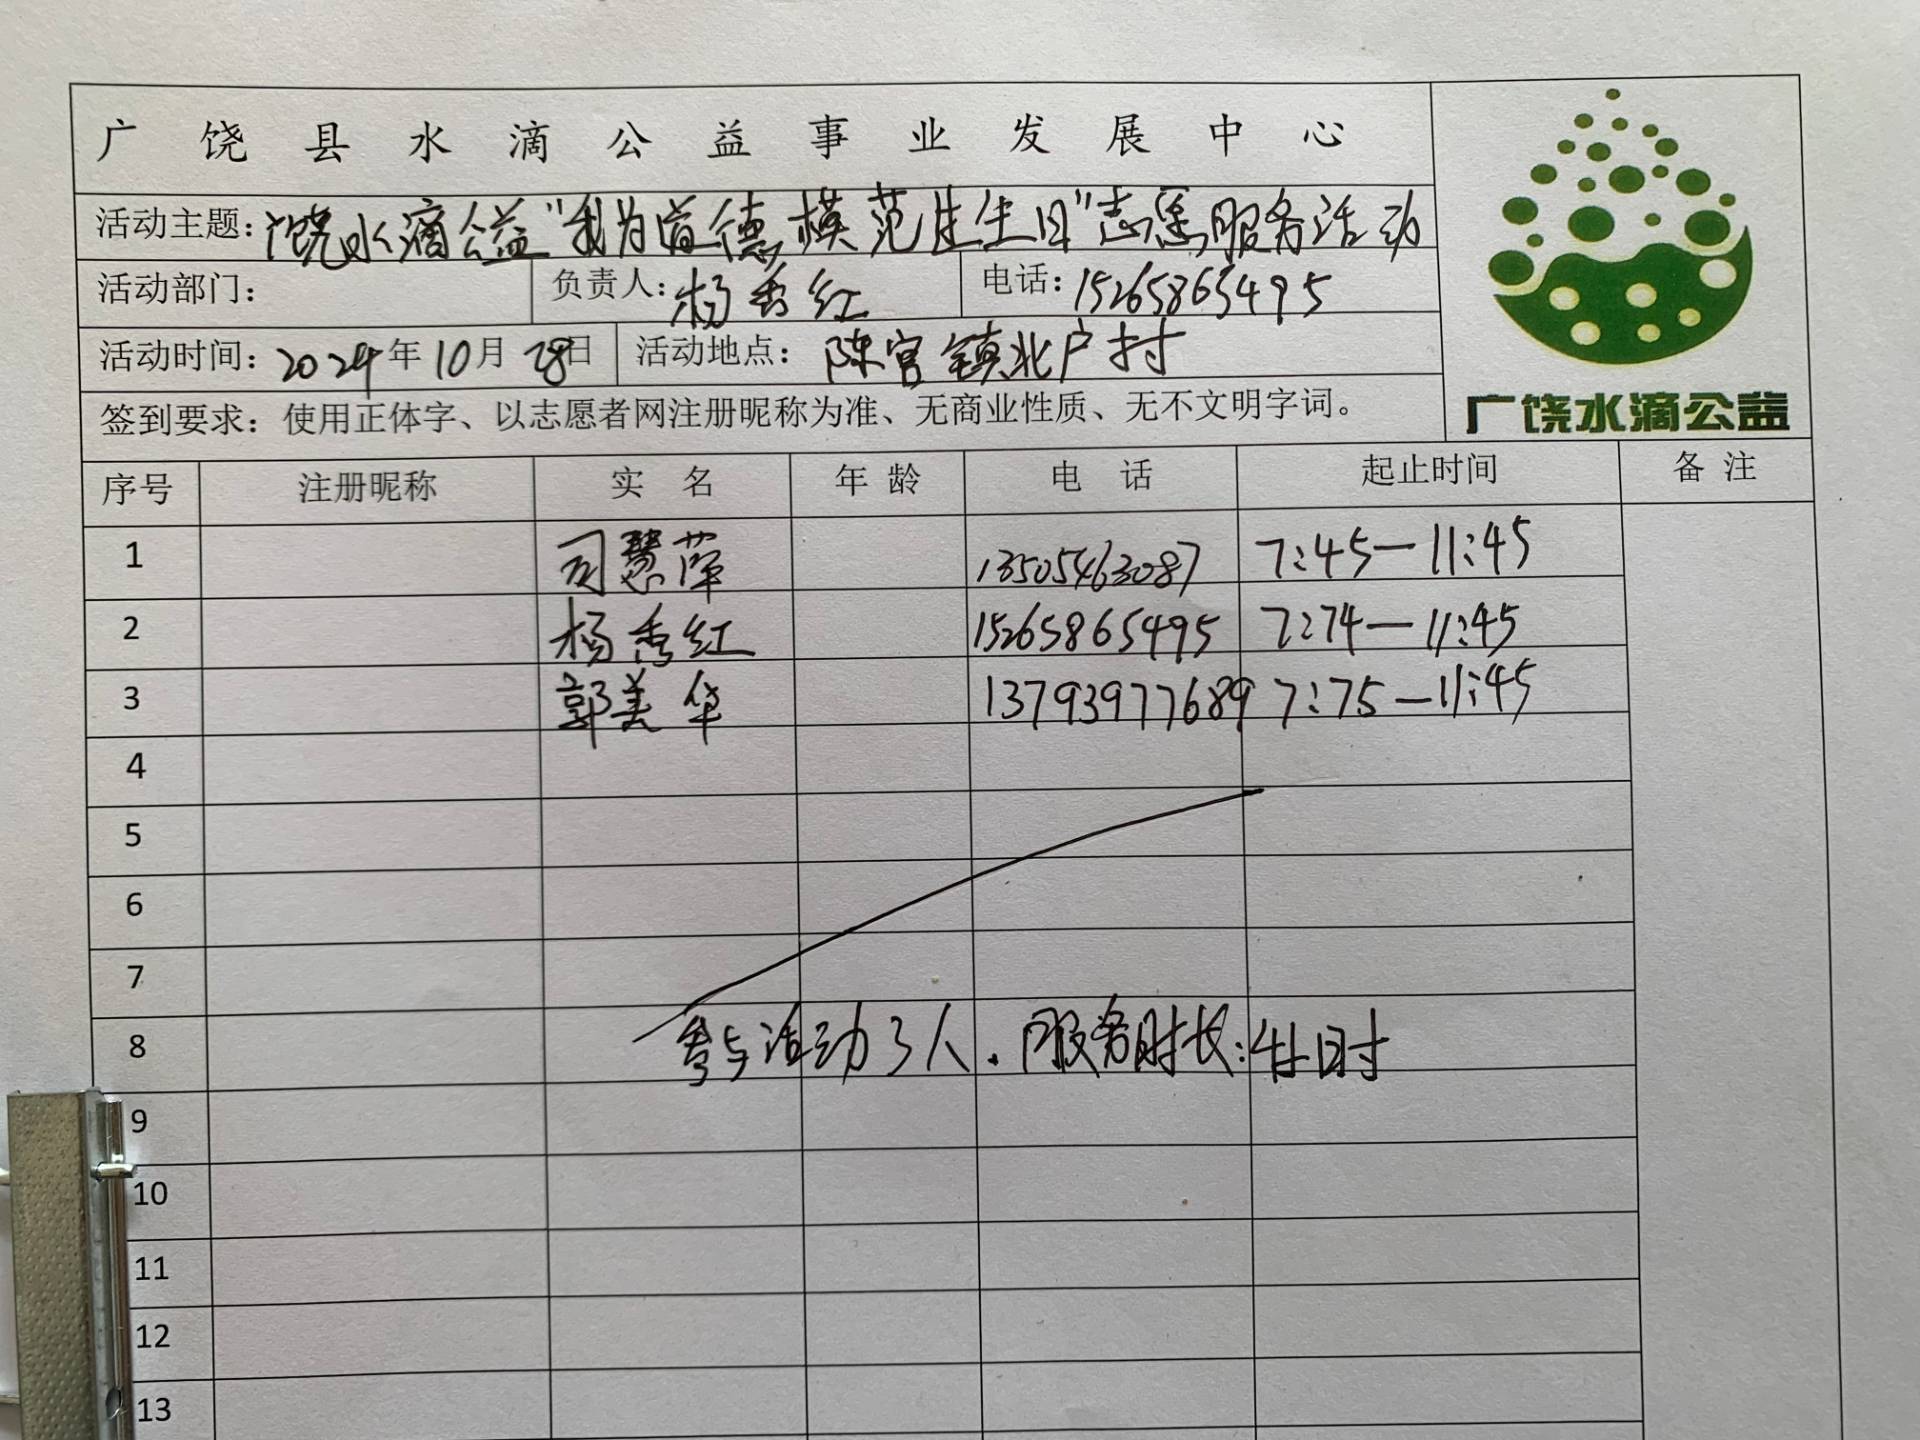 广饶县水滴公益事业发展中心
活动主题：饶水滴公益"我为道德模范生生日"志愿服务活动
活动部门： 负责人：杨秀红 电话：15265865495
活动时间：2024年10月28日 活动地点：陈官镇北户村
签到要求：使用正体字、以志愿者网注册昵称为准、无商业性质、无不文明字词。
广饶水滴公益
序号 注册昵称 实名 年龄 电话 起止时间 备注
1 司慧萍 13505463087 7:45—11:45
2 杨秀红 15265865495 7:74—11:45
3 郭美华 13793977689 7:75—11:45
4
5
6
7
8 参与活动3人．服务时长：4小时
9
10
11
12
13